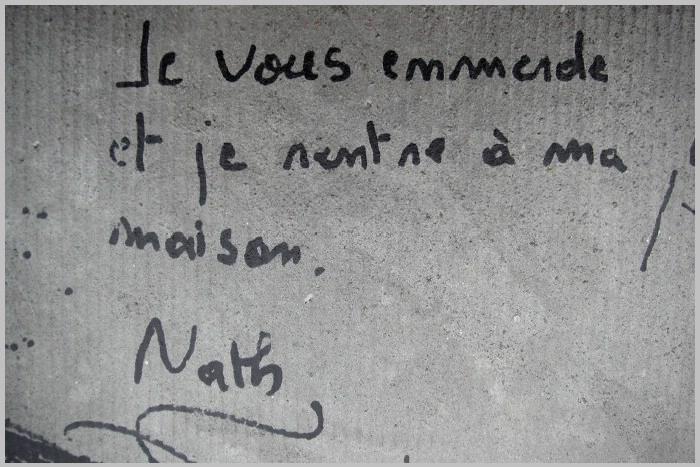 Je vous emmerde
et je rentre à ma
maison.
Nath